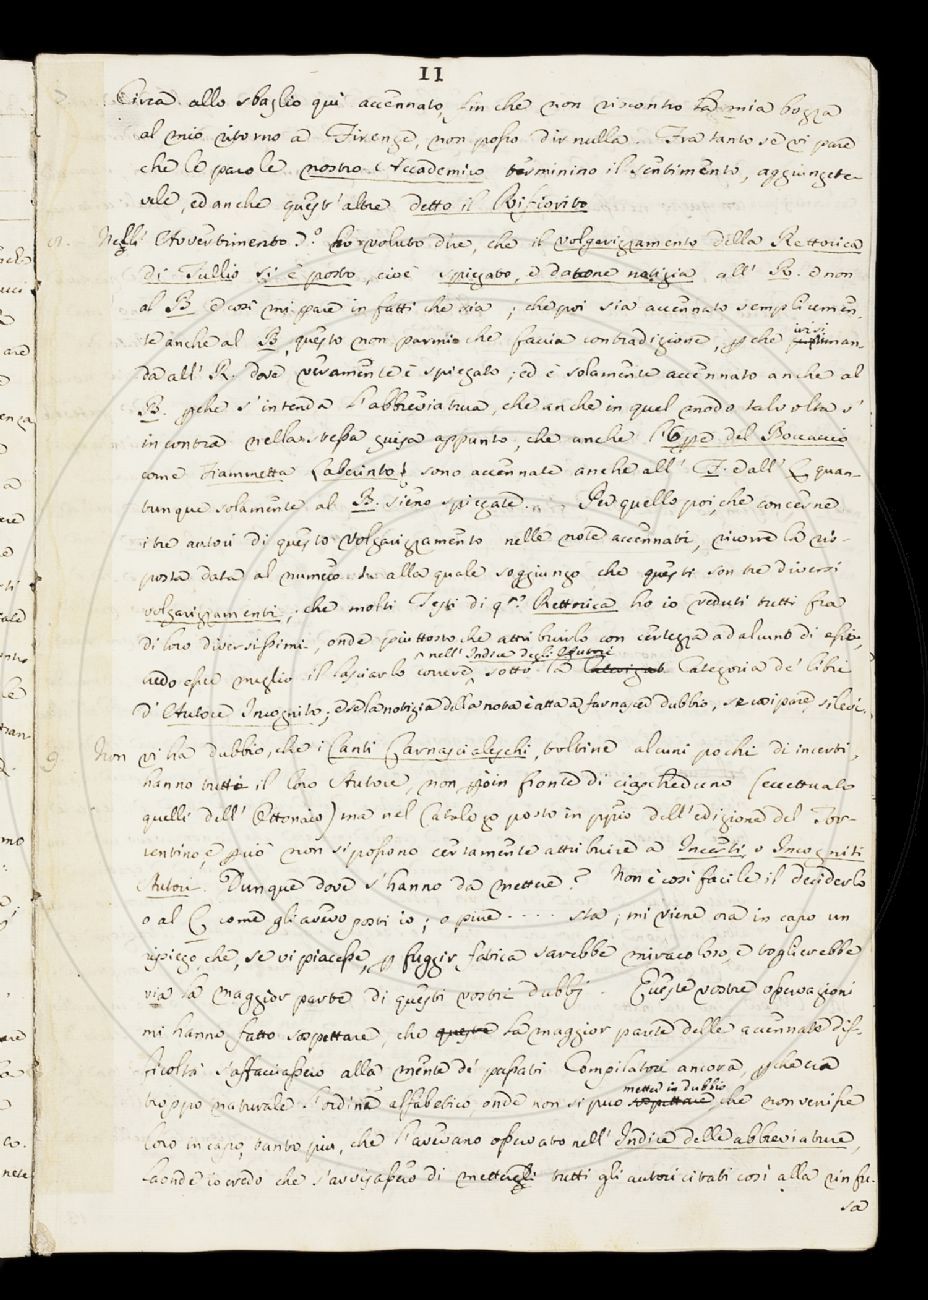 11
Circa allo sbaglio quì accennato, fin che non riscontro la mia bozza
al mio ritorno a Firenze, non posso dir nulla. Fra tanto se vi pare
che le parole nostro Accademico terminino il sentimento, aggiungete-
vele, ed anche quest'altre detto il Rifiorito
8. Nell' Avvertimento d.º ho voluto dire, che il volgarizzamento della Rettorica
di Tullio si è posto, cioè spiegato, e datone notizia all' R. e non
al B e così mi pare in fatti che sia; che poi sia accennato semplicemen-
te anche al B, questo non parmi che faccia contradizione, pche ivi si man-
da all' R. dove veramente è spiegato; ed è solamente accennato anche al
B. pche s'intenda l'abbreviatura, che anche in quel modo talvolta s'
incontra nella stessa guisa appunto, che anche l'Oppe del Boccaccio
come Fiammetta Laberinto sono accennate anche all' F. e all' L quan-
tunque solamente al B. sieno spiegate. Per quello poi, che concerne
i tre autori di questo volgarizzamento nelle note accennati, ricorre la ris-
posta data al numero alla quale soggiungo che questi son tre diversi
volgarizzamenti, che molti Testi di q.ª Rettorica ho io veduti tutti fra
di loro diversissimi, onde piuttosto che attribuirlo con certezza ad alcuno di essi,
nell' Indice degli Autori
credo esser meglio il lasciarlo correre, sotto la Categoria de' libri
d'Autore Incognito; e se la notizia della nota è atta a far nascer dubbio, se così pare, si levi.
9. Non vi ha dubbio, che i Canti Carnascialeschi, toltine alcuni pochi di incerti,
hanno tutti il loro Autore, non già in fronte di ciascheduno (eccettuato
quelli dell' Ottonaio) ma nel Catalogo posto in ppio dell' edizione del Tor-
rentino, e pciò non si possono certamente attribuire a Incerti o Incogniti
Autori. Dunque dove s'hanno da mettere? Non è così facile il deciderlo
o al C come gli avevo posti io; o pure ..... sta; mi viene ora in capo un
ripiego, che, se vi piacesse, p fuggir fatica sarebbe miracoloso, e toglierebbe
via la maggior parte di questi vostri dubbj. Queste vostre osservazioni
mi hanno fatto sospettare, che queste la maggior parte delle accennate dif-
ficoltà s'affacciassero alla mente de' passati Compilatori ancora, pche era
troppo naturale l'ordine alfabetico, onde non si può metter in dubbio che non venisse
loro in capo, tanto più, che l'avevano osservato nell' Indice delle abbreviature,
laonde io credo che s'avvisassero di mettergli tutti gli autori citati così alla rinfu-
sa